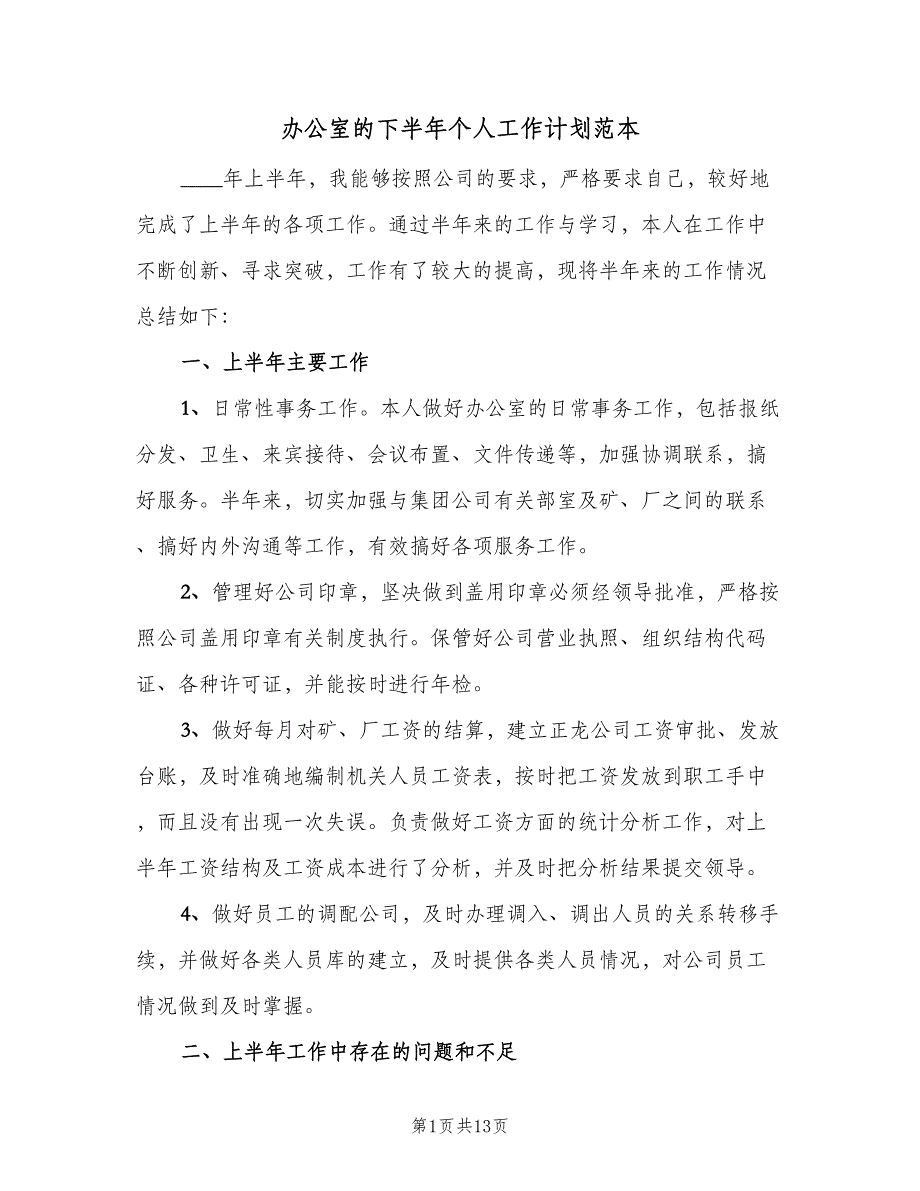 办公室的下半年个人工作计划范本
____年上半年，我能够按照公司的要求，严格要求自己，较好地
完成了上半年的各项工作。通过半年来的工作与学习，本人在工作中
不断创新、寻求突破，工作有了较大的提高，现将半年来的工作情况
总结如下：
一、上半年主要工作
1、日常性事务工作。本人做好办公室的日常事务工作，包括报纸
分发、卫生、来宾接待、会议布置、文件传递等，加强协调联系，搞
好服务。半年来，切实加强与集团公司有关部室及矿、厂之间的联系
、搞好内外沟通等工作，有效搞好各项服务工作。
2、管理好公司印章，坚决做到盖用印章必须经领导批准，严格按
照公司盖用印章有关制度执行。保管好公司营业执照、组织结构代码
证、各种许可证，并能按时进行年检。
3、做好每月对矿、厂工资的结算，建立正龙公司工资审批、发放
台账，及时准确地编制机关人员工资表，按时把工资发放到职工手中
，而且没有出现一次失误。负责做好工资方面的统计分析工作，对上
半年工资结构及工资成本进行了分析，并及时把分析结果提交领导。
4、做好员工的调配公司，及时办理调入、调出人员的关系转移手
续，并做好各类人员库的建立，及时提供各类人员情况，对公司员工
情况做到及时掌握。
二、上半年工作中存在的问题和不足
第1页共13页